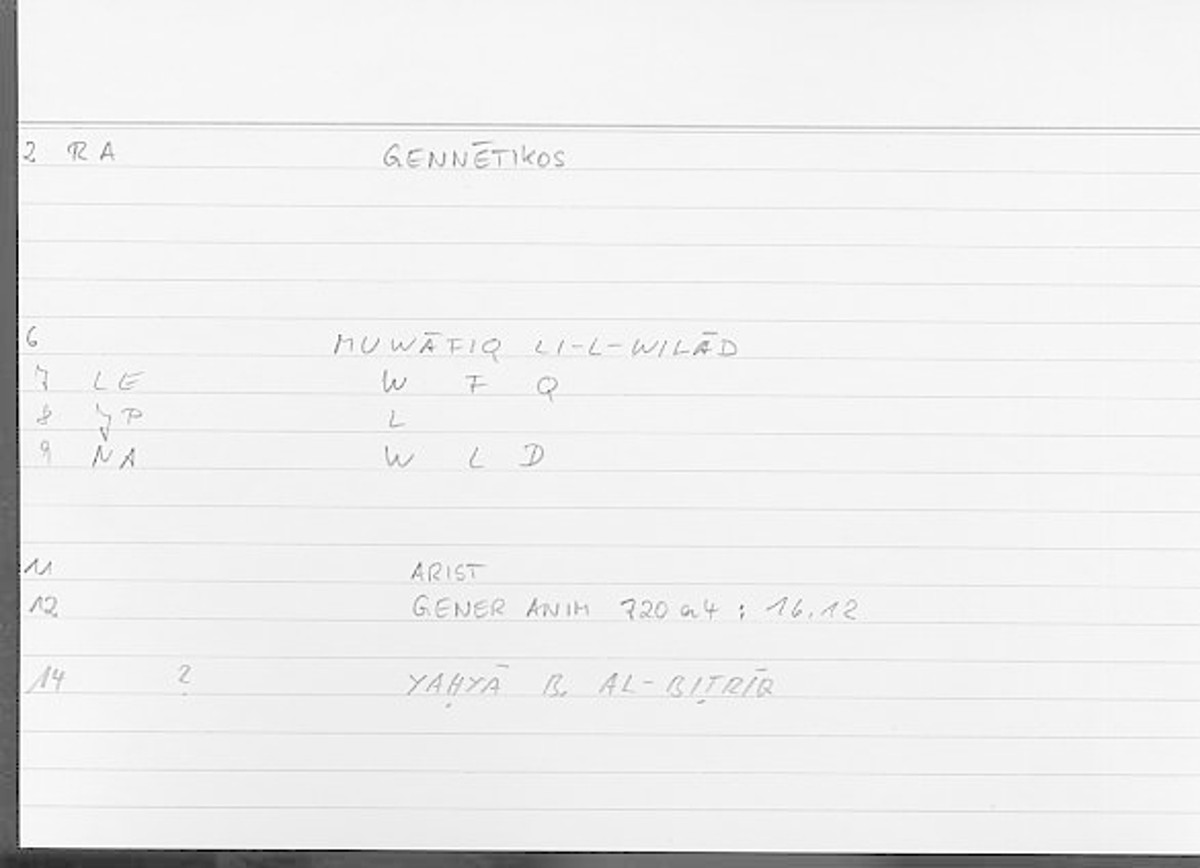 2 RA GENNĒTIKOS
6 MUWĀFIQ LI-L-WILĀD
7 LE W F Q
8 JP L
9 NA W L D
11 ARIST
12 GENER ANIM 720 a 4 : 16.12
14 ? YAḤYĀ B. AL-BIṬRĪQ